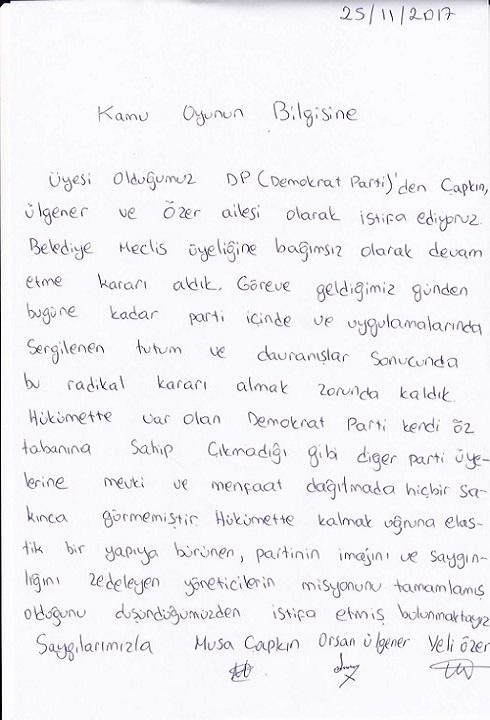 25/11/2017
Kamu Oyunun Bilgisine
Üyesi Olduğumuz DP (Demokrat Parti)'den Çapkın,
Ülgener ve Özer ailesi olarak istifa ediyoruz.
Belediye Meclis üyeliğine bağımsız olarak devam
etme kararı aldık. Göreve geldiğimiz günden
bugüne kadar parti içinde ve uygulamalarında
Sergilenen tutum ve davranışlar Sonucunda
bu radikal kararı almak zorunda kaldık.
Hükümette var olan Demokrat Parti kendi öz
tabanına Sahip Çıkmadığı gibi diğer parti üye-
lerine mevki ve menfaat dağıtmada hiçbir sa-
kınca görmemiştir. Hükümette kalmak uğruna elas-
tik bir yapıya bürünen, partinin imajını ve saygın-
lığını zedeleyen yöneticilerin misyonunu tamamlamış
olduğunu düşündüğümüzden istifa etmiş bulunmaktayız
Saygılarımızla Musa Çapkın Orşan Ülgener Veli Özer